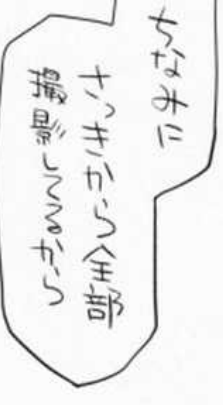 ちなみに
さっきから全部
撮影してるから